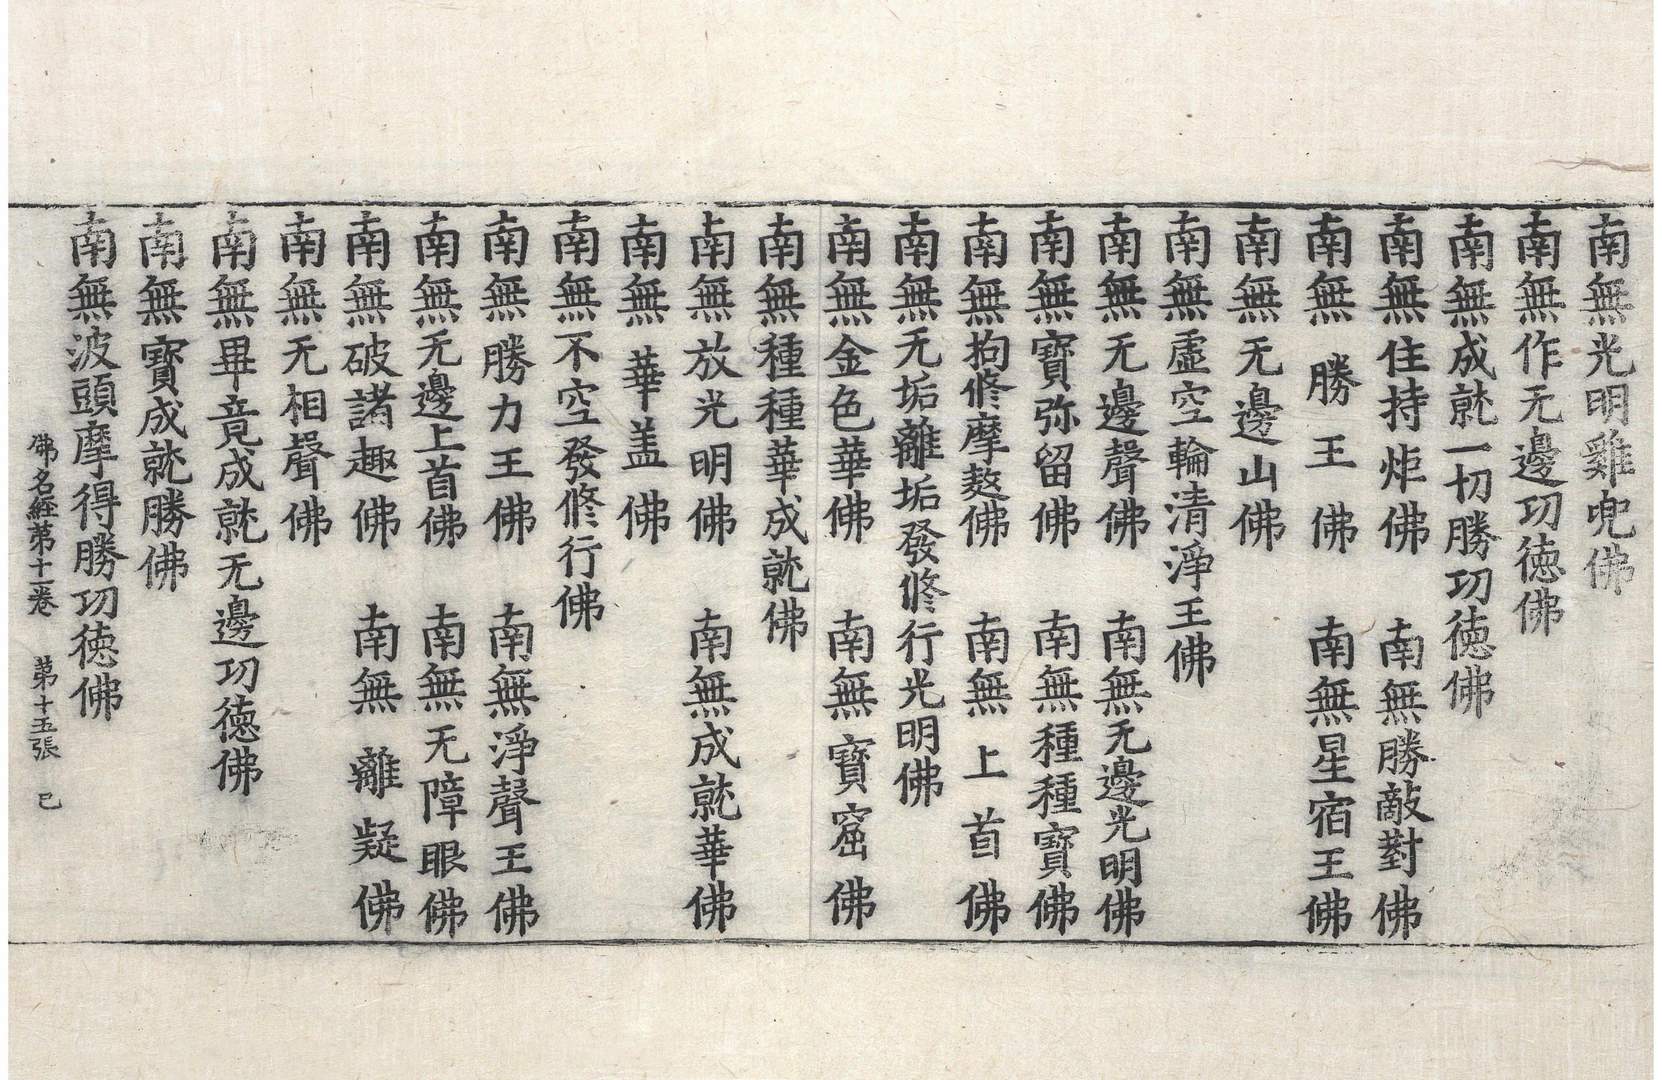 南無光明雞兜佛
南無作无邊功德佛
南無成就一切勝功德佛
南無住持炬佛 南無勝敵對佛
南無勝王佛 南無星宿王佛
南無无邊山佛
南無虛空輪清淨王佛
南無无邊聲佛 南無无邊光明佛
南無寶弥留佛 南無種種寶佛
南無拘修摩㲄佛 南無上首佛
南無无垢離垢發修行光明佛
南無金色華佛 南無寶窟佛
南無種種華成就佛
南無放光明佛 南無成就華佛
南無華盖佛
南無不空發修行佛
南無勝力王佛 南無淨聲王佛
南無无邊上首佛 南無无障眼佛
南無破諸趣佛 南無離疑佛
南無无相聲佛
南無畢竟成就无邊功德佛
南無寶成就勝佛
南無波頭摩得勝功德佛
佛名經第十一卷 第十五張 已